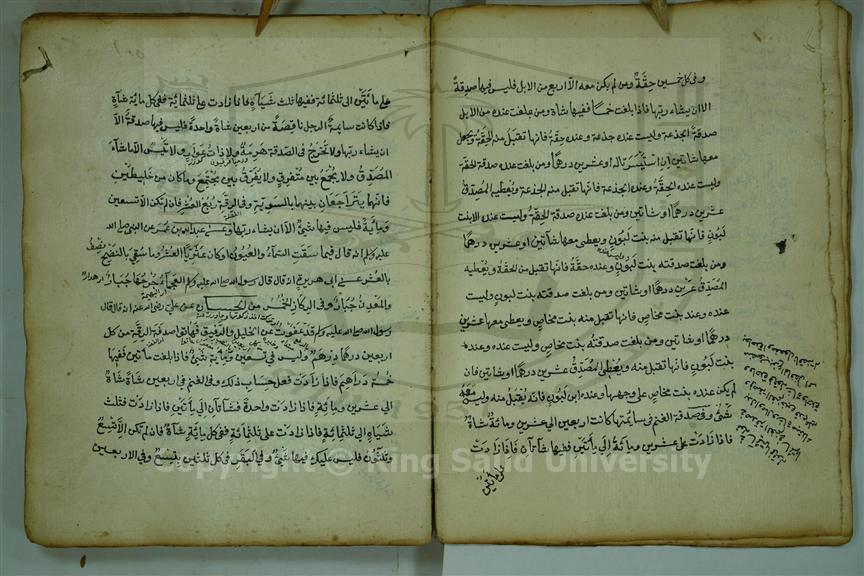 وفى كل خمسين حِقَّةٌ ومن لم يكن معه الّا اربع من الابل فليس فيها صدقةٌ
الا ان يشاء ربها فاذا بلغت خمسًا ففيها شاة ومن بلغت عنده من الابل
صدقة الجذعة وليست عنده جذعة وعنده حِقة فانها تقبل منه الحقة ويجعل
معها شاتين اِنِ اسْتَيْسَرَتا له او عشرين درهمًا ومن بلغت عنده صدقة الحقة
وليست عنده الحِقَّة وعنده الجذعة فانها تقبل منه الجذعة ويُعطيه المصدق
عشرين درهمًا او شاتين ومن بلغت عنده صدقة الحقة وليست عنده الا بنت
لبون فانها تقبل منه بنت لبون ويعطى معها شاتين او عشرين درهمًا
ومن بلغت صدقته بنت لبون وعنده حقّة فانها تقبل منه الحقة ويُعْطيه
المُصَدِّق عشرين درهمًا او شاتين ومن بلغت صدقته بنت لبون وليست
عنده وعنده بنت مخاض فانها تقبل منه بنت مخاض ويعطى معها عشرين
درهمًا او شاتين ومن بلغت صدقته بنت مخاض وليست عنده وعنده
بنت لبون فانها تقبل منه ويُعْطِى المُصَدِّق عشرين درهمًا او شاتين فان
لم يكن عنده بنت مخاض على وجهها وعنده ابن لبون فانه يُقبَلُ منه وليس معه
شئٌ وفى صدقة الغنم فى سائمتها كانت اربعين الى عشرين ومائة شاةٌ
فاذا زادت على عشرين ومائة الى مأتين ففيها شاتان فاذا زادت
على مائتين
على مائتين الى ثلثمائة ففيها ثلث شياه فاذا زادت على ثلثمائة ففى كل مائة شاة
فاذا كانت سايمة الرجل ناقصة من اربعين شاة واحدة فليس فيها صدقة الّا
ان يشاء ربها ولا تُخرج فى الصّدقة هَرِمةٌ ولا ذات عَوارٍ ولا تَيْس الا ما شاء
المصَدِّق ولا يُجمع بين متفرق ولا يفرق بين مجتمع وما كان من خليطين
فانهما يتراجعان بينهما بالسوية وفى الرقة رُبع العشر فان لم تكن الا تسعين
ومائة فليس فيها شئٌ الّا ان يشاء ربها وعن عبد الله بن عمر عن النبى صلى الله
عليه وسلم انه قال فيما سقت السماء والعيون او كان عَثَرِيًّا العُشر وما سُقِى بالنضح نصف
العشر عن ابى هريرة انه قال قال رسول الله صلى الله عليه وسلم العجماء جُرحُها جُبارٌ
والمعدِن جُبارٌ وفى الركاز الخمس من الحسان عن على رضى الله عنه انه قال قال
رسول الله صلى الله عليه وسلم قد عفوت عن الخيل والرقيق فهاتوا صدقة الرقة من كل
اربعين درهمًا دِرْهمٌ وليس فى تسعين ومائة شئٌ فاذا بلغت مأتين ففيها
خمسة دراهم فاذا زادت فعلى حساب ذلك وفى الغنم فى اربعين شاةً شاةٌ
الى عشرين ومائة فاذا زادت واحدة فشاتان الى مأتين فاذا زادت فثلث
شياه الى ثلثمائة فاذا زادت على ثلثمائة ففى كل مائة شاةٌ فان لم تكن الا تسعٌ
وثلثون فليس عليك فيها شئٌ وفى البقر فى كل ثلثين تبيعٌ وفى الاربعين
Copyright © King Saud University